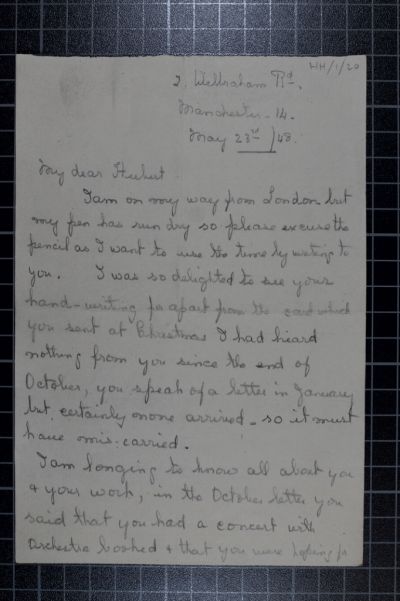 HH/1/20
2, Wellraham Rd.
Manchester - 14.
May 23rd /48.
My dear Hubert
I am on my way from London but
my pen has run dry so please excuse the
pencil as I want to use the time by writing to
you. I was so delighted to see your
hand-writing for apart from the card which
you sent at Christmas I had heard
nothing from you since the end of
October, you speak of a letter in January
but certainly none arrived - so it must
have mis-carried.
I am longing to know all about you
& your work, in the October letter you
said that you had a concert with
Orchestra booked & that you were hoping for